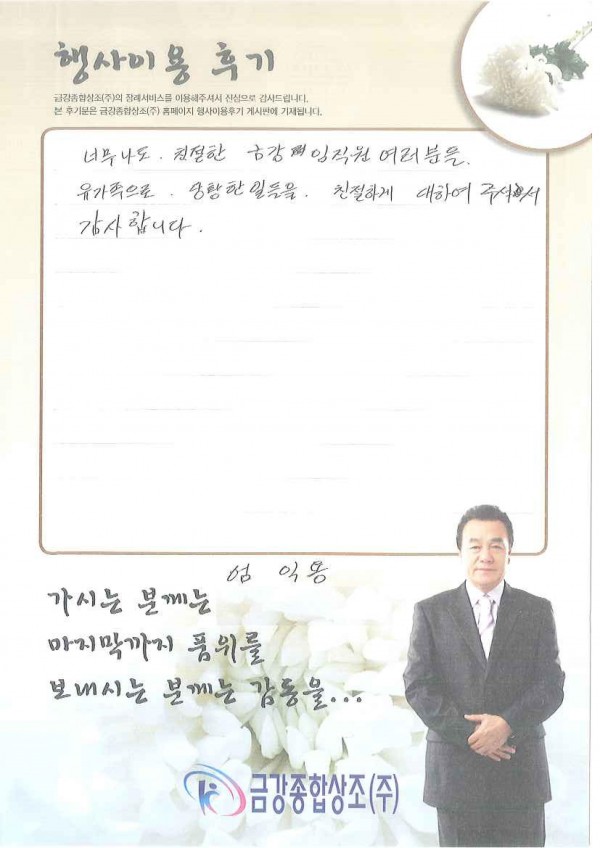 행사이용 후기
금강종합상조(주)의 장례서비스를 이용해주셔서 진심으로 감사드립니다.
본 후기문은 금강종합상조(주) 홈페이지 행사이용후기 게시판에 기재됩니다.
너무나도. 친절한 금강 임직원 여러분들.
유가족으로. 당황한일들을. 친절하게 대하여 주셔서
감사합니다.
엄익용
가시는 분께는
마지막까지 품위를
보내시는 분께는 감동을...
금강종합상조(주)